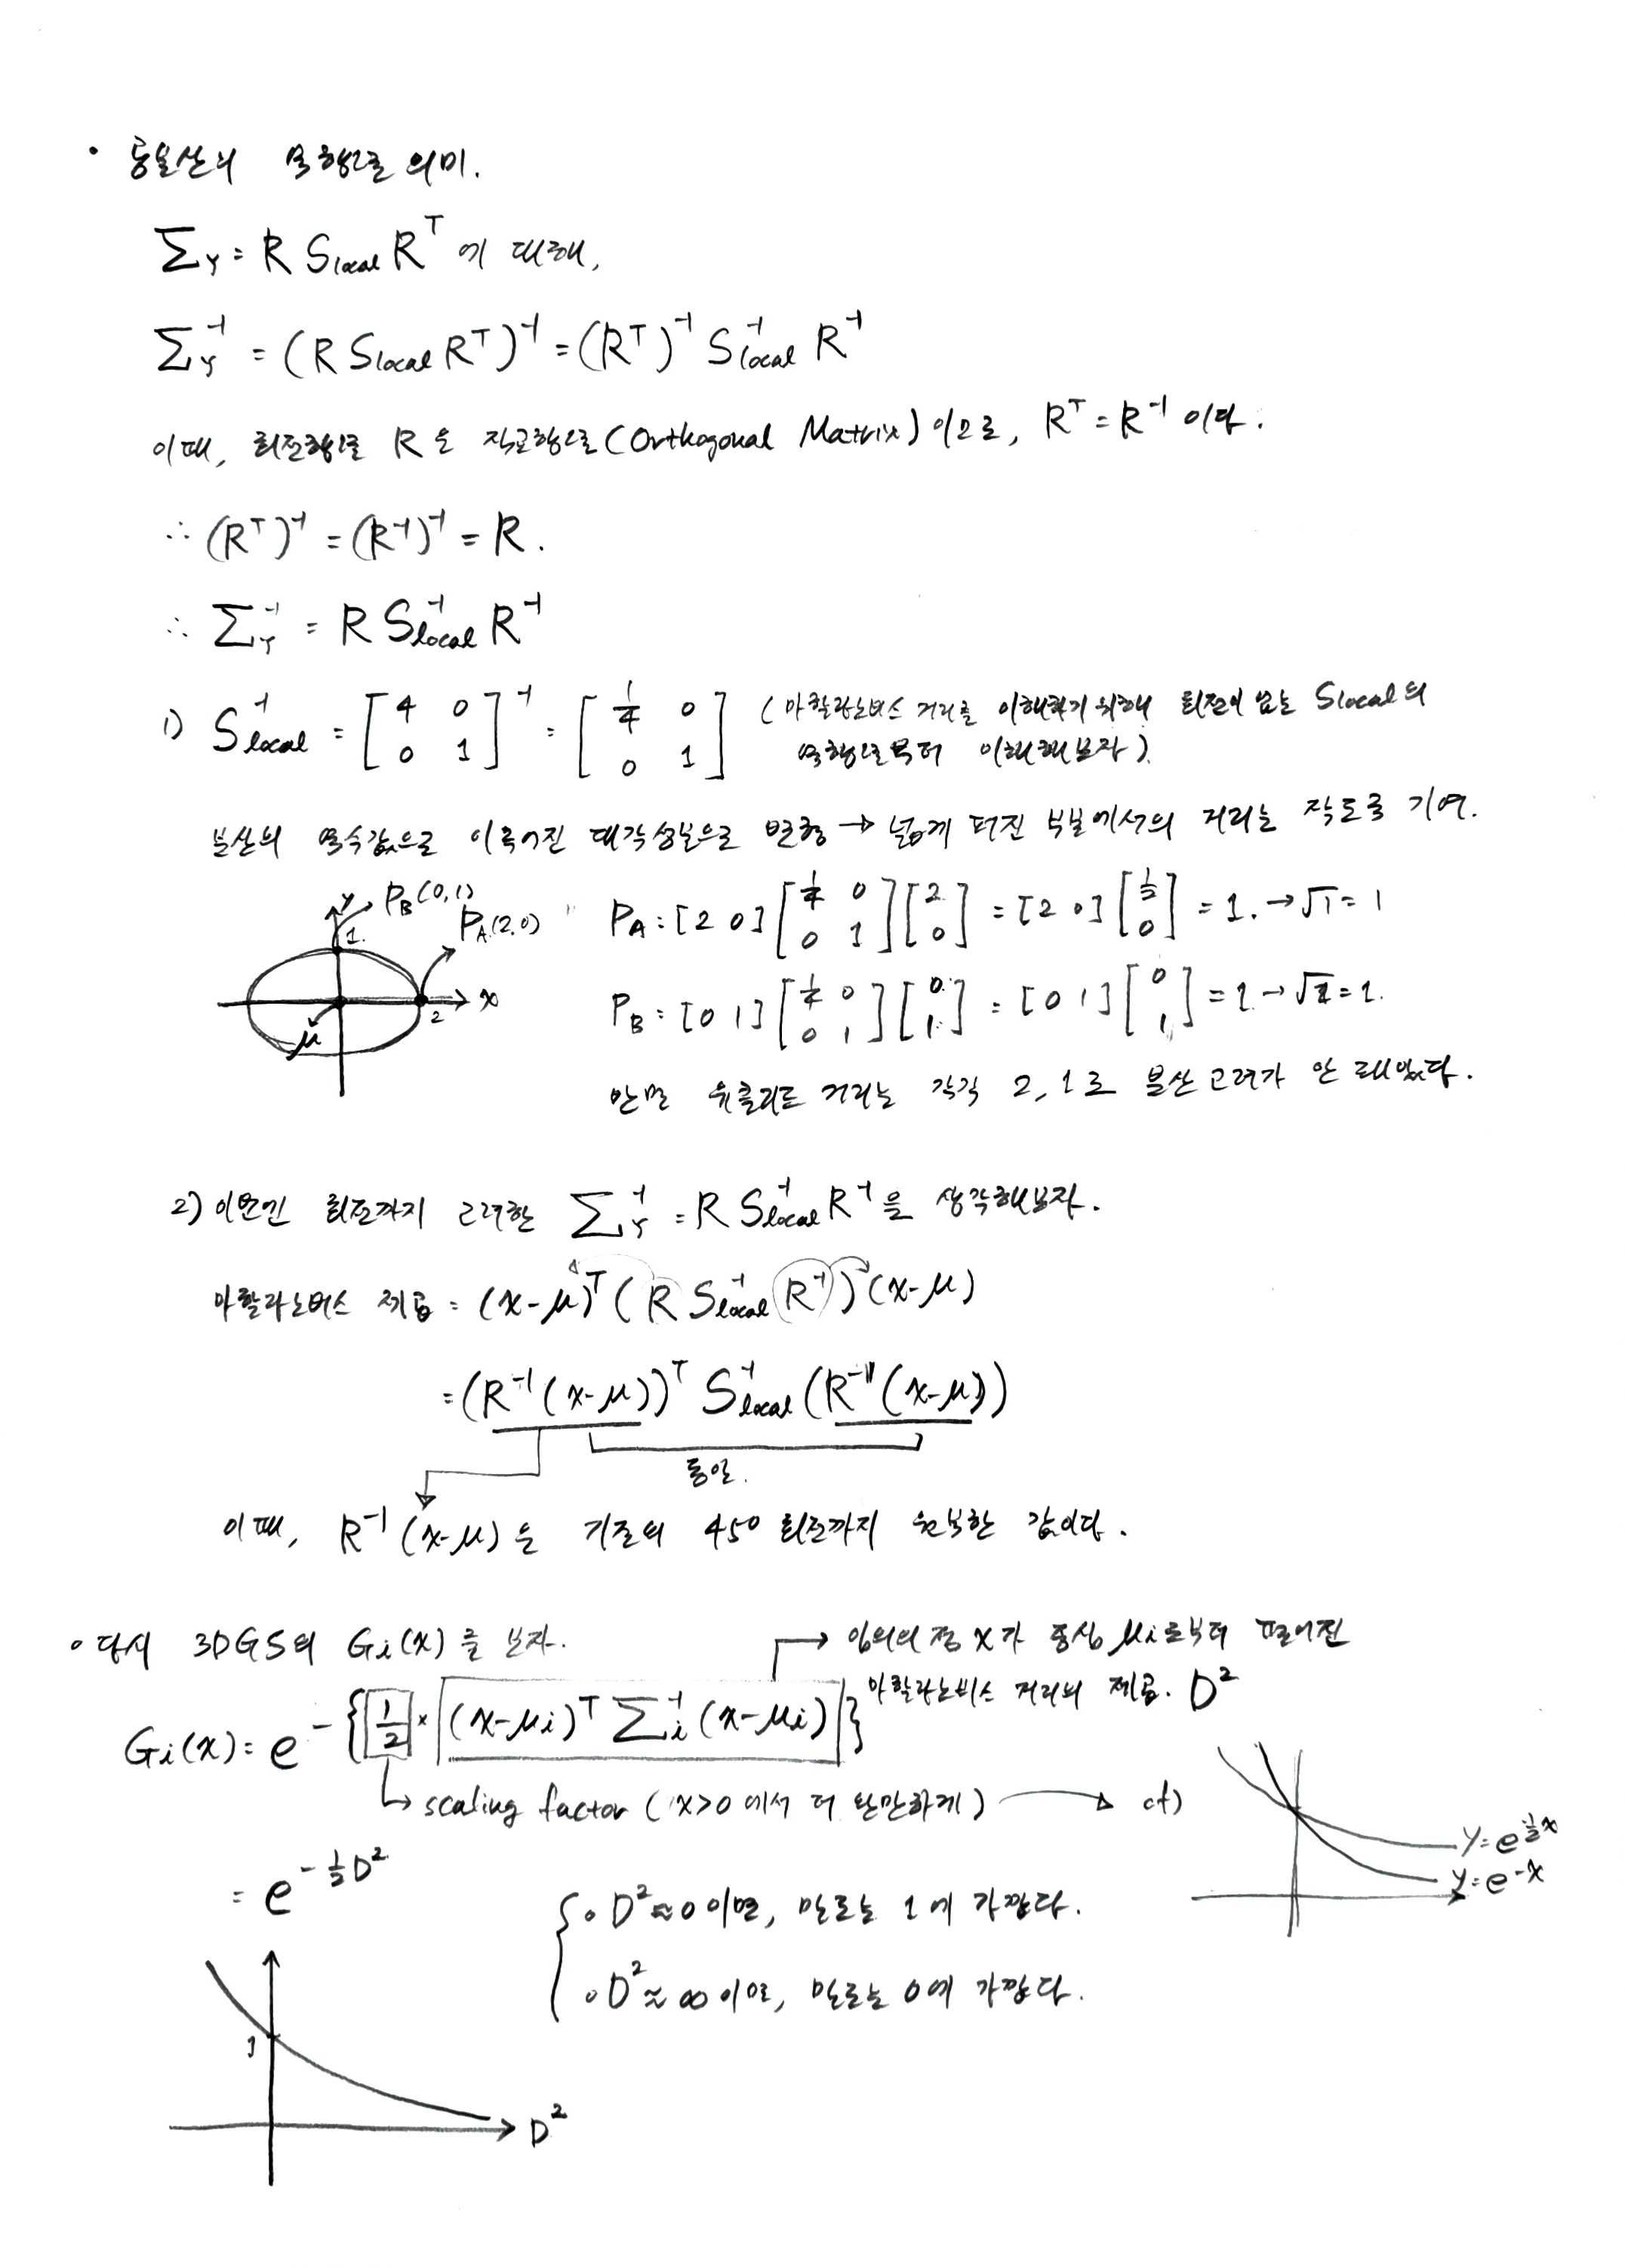 • 공분산의 역행렬 의미.
Σ_Y = R S_local R^T 에 대해,
Σ_Y^-1 = (R S_local R^T)^-1 = (R^T)^-1 S_local^-1 R^-1
이때, 회전행렬 R은 직교행렬(Orthogonal Matrix)이므로, R^T = R^-1 이다.
∴ (R^T)^-1 = (R^-1)^-1 = R.
∴ Σ_Y^-1 = R S_local^-1 R^-1
1) S_local^-1 = [4 0; 0 1]^-1 = [1/4 0; 0 1] (마할라노비스 거리를 이해하기 위해 회전이 없는 S_local의
역행렬부터 이해해보자).
분산의 역수값으로 이루어진 대각성분으로 변형 → 넓게 퍼진 부분에서의 거리는 작도록 기여.
y P_B(0,1)
P_A(2,0)
1.
x
2
μ
P_A : [2 0][1/4 0; 0 1][2; 0] = [2 0][1/2; 0] = 1. → √1 = 1
P_B : [0 1][1/4 0; 0 1][0; 1] = [0 1][0; 1] = 1 → √1 = 1.
반면 유클리드 거리는 각각 2, 1로 분산 고려가 안 돼있다.
2) 이번엔 회전까지 고려한 Σ_Y^-1 = R S_local^-1 R^-1을 생각해보자.
마할라노비스 제곱 = (x-μ)^T (R S_local^-1 R^-1)(x-μ)
= (R^-1(x-μ))^T S_local^-1 (R^-1(x-μ))
동일.
이때, R^-1(x-μ)는 기존의 45° 회전까지 원복한 값이다.
• 다시 3DGS의 G_i(x)를 보자.
→ 임의의 점 x가 중심 μ_i로부터 떨어진
마할라노비스 거리의 제곱. D²
G_i(x) = e^-{1/2 × (x-μ_i)^T Σ_i^-1 (x-μ_i)}
↳ scaling factor (x>0에서 더 완만하게) → cf)
y = e^½x
y = e^-x
= e^-½D²
• D² ≈ 0이면, 밀도는 1에 가깝다.
• D² ≈ ∞이면, 밀도는 0에 가깝다.
1
D²